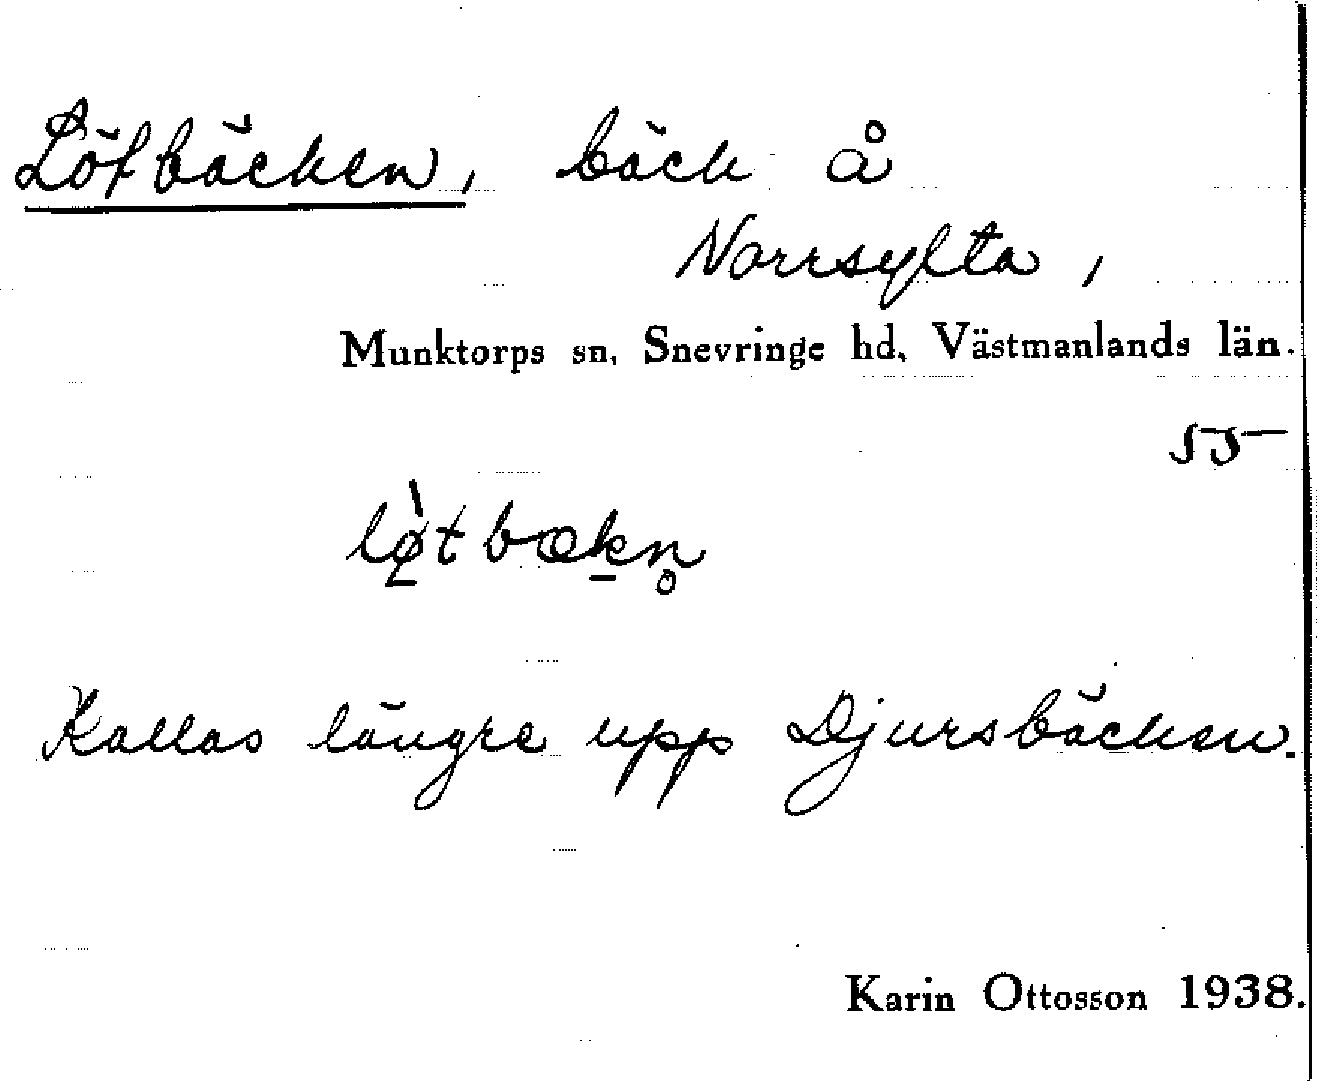 Lötbäcken, bäck å
Norrsylta,
Munktorps sn, Snevringe hd, Västmanlands län.
55
lø̀tbækn̥
Kallas längre upp Djursbäcken.
Karin Ottosson 1938.